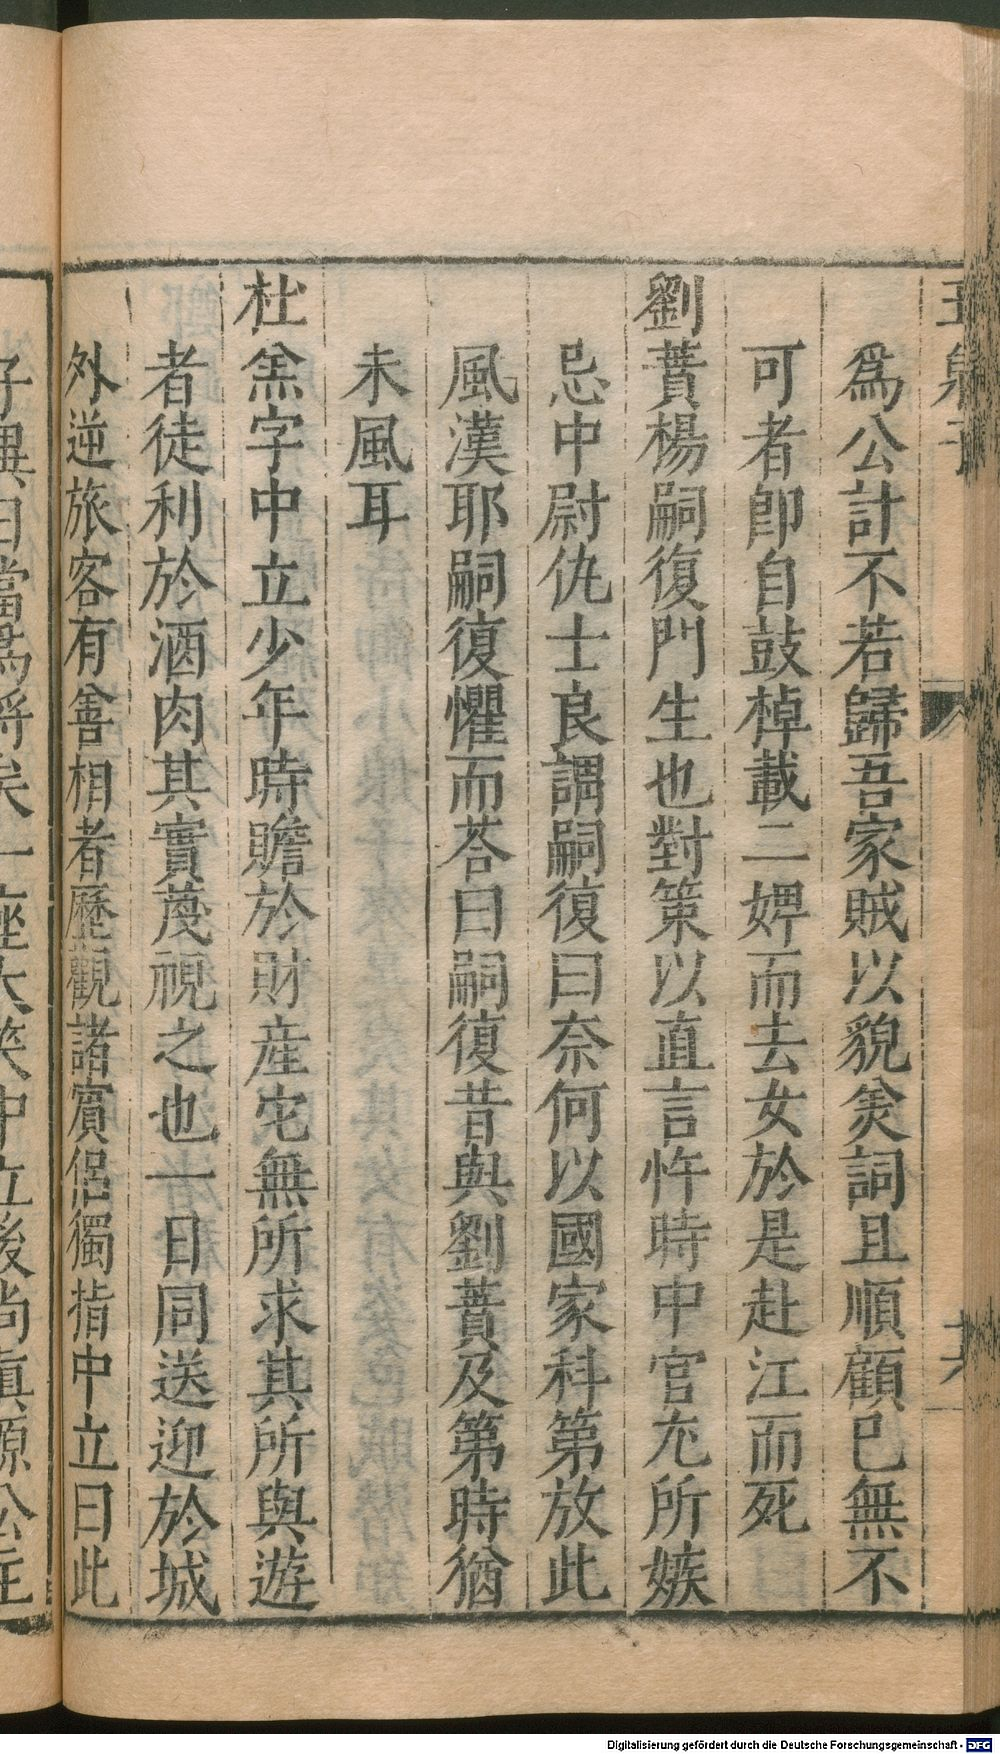 爲公計不若歸吾家賊以貌矣詞且順顧已無不
可者即自鼓棹載二婢而去女於是赴江而死
劉蕡楊嗣復門生也對策以直言忤時中官尤所嫉
忌中尉仇士良謂嗣復曰奈何以國家科第放此
風漢耶嗣復懼而荅曰嗣復昔與劉蕡及第時猶
未風耳
杜 字中立少年時贍於財產宅無所求其所與遊
者徒利於酒肉其實蔑視之也一日同送迎於城
外逆旅客有善相者歷觀諸賓侶獨指中立曰此
子異日當爲將矣一座大笑中立後尚真源公主
Digitalisierung gefördert durch die Deutsche Forschungsgemeinschaft - DFG